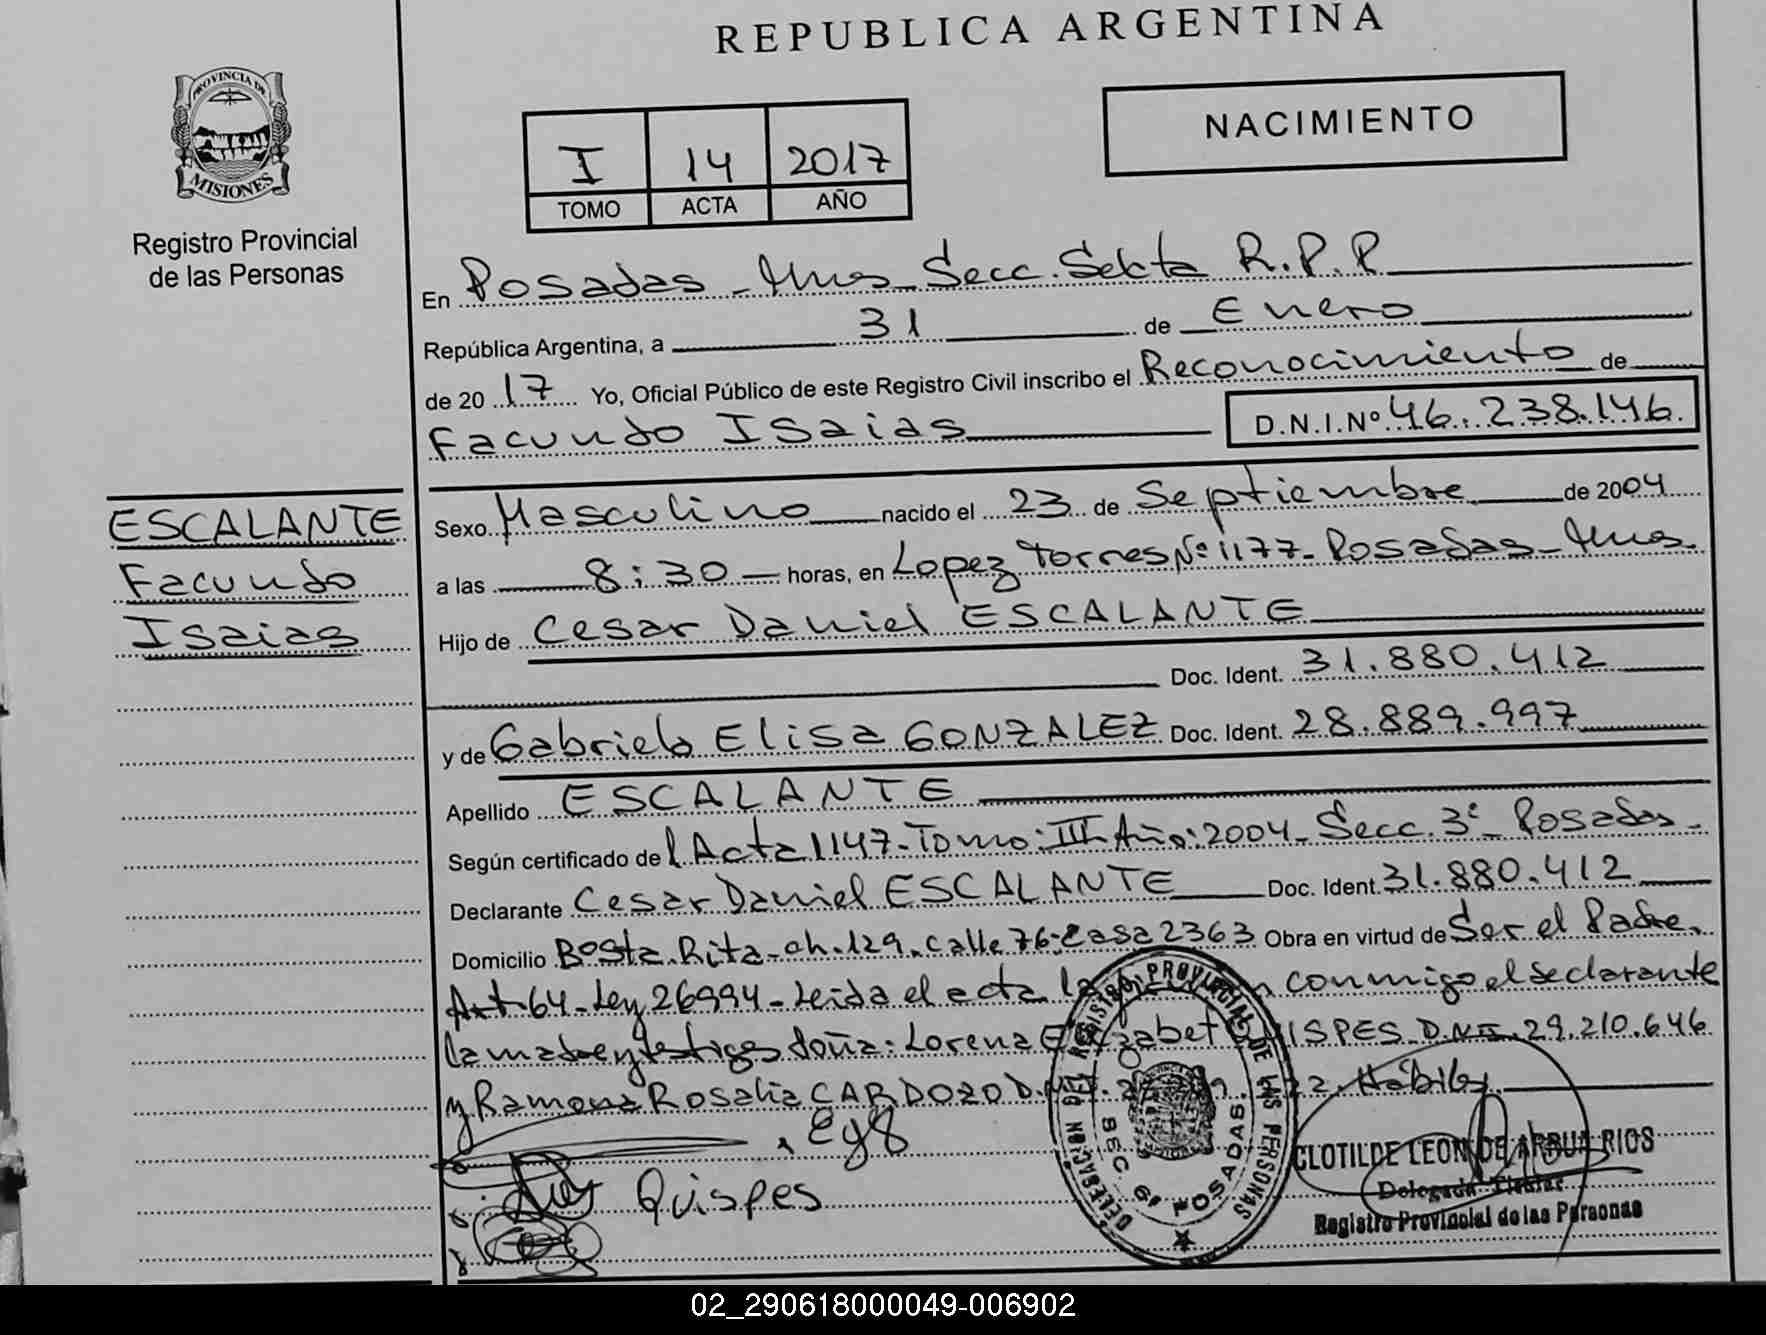 REPUBLICA ARGENTINA
PROVINCIA DE
MISIONES
Registro Provincial
de las Personas
NACIMIENTO
I 14 2017
TOMO ACTA AÑO
En Posadas - Mnes Secc. Sekta R.P.P
República Argentina, a 31 de Enero
de 20 17 Yo, Oficial Público de este Registro Civil inscribo el Reconocimiento de
Facundo Isaias D.N.I.Nº 46.238.146.
ESCALANTE
Facundo
Isaias
Sexo Masculino nacido el 23 de Septiembre de 2004
a las 8:30 horas, en Lopez Torres Nº 1177 - Posadas - Mnes.
Hijo de Cesar Daniel ESCALANTE
Doc. Ident. 31.880.412
y de Gabriela Elisa GONZALEZ Doc. Ident. 28.889.997
Apellido ESCALANTE
Según certificado de l Acta 1147 - Tomo: III - Año: 2004 - Secc. 3ª - Posadas -
Declarante Cesar Daniel ESCALANTE Doc. Ident. 31.880.412
Domicilio Bº Sta. Rita - ch. 129. calle 76 - casa 2363 Obra en virtud de Ser el Padre.
Art. 64 - Ley 26994 - Leida el acta la conmigo el declarante
la madre y testigos doña: Lorena Elizabet QUISPES D.N.I. 29.210.646
y Ramona Rosalia CARDOZO Hábiles
Quispes
DELEGACION DEL REGISTRO PROVINCIAL DE LAS PERSONAS
SEC. 6ª POSADAS
CLOTILDE LEON DE ARRUA RIOS
Delegada Titular
Registro Provincial de las Personas
02_290618000049-006902